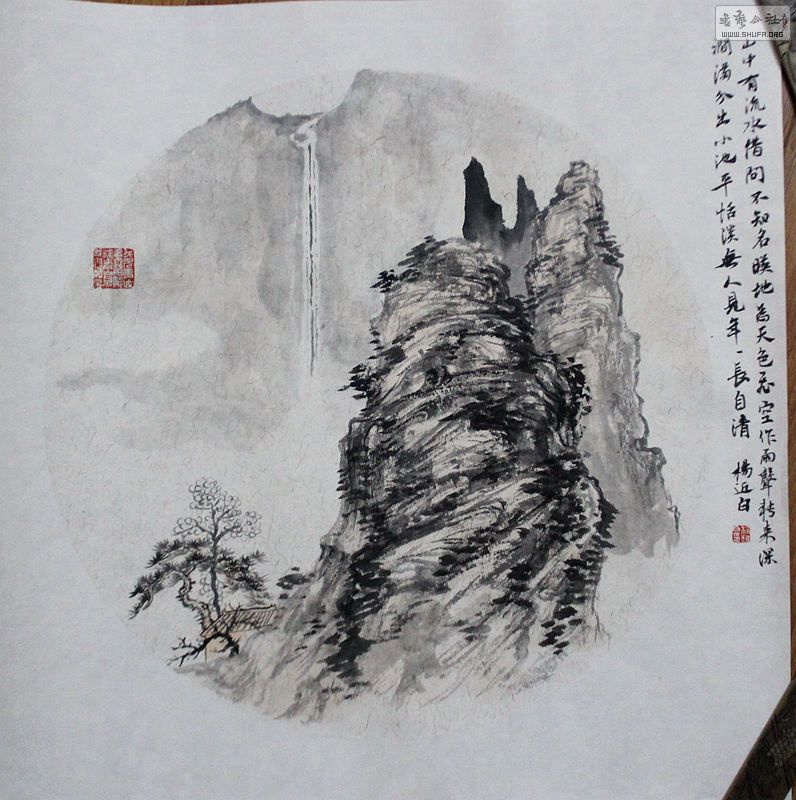 書藝公社
WWW.SHUFA.ORG
山中有流水借問不知名暎地為天色飛空作雨聲轉来深
澗滿分出小池平恬淡無人見年〻長自清
楊近白